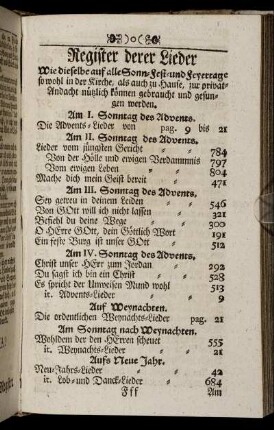 Register derer Lieder
Wie dieselbe auf alle Sonn-Fest-und Feyertage
sowohl in der Kirche, als auch zu Hause, zur privat-
Andacht nützlich können gebraucht und gesun-
gen werden.
Am I. Sonntag des Advents.
Die Advents-Lieder von pag. 9 bis 21
Am II. Sonntag des Advents.
Lieder vom jüngsten Gericht 784
Von der Höll und ewigen Verdammnis 797
Vom ewigen Leben 804
Mache dich mein Geist bereit 471
Am III. Sonntag des Advents.
Sey getreu in deinem Leiden 546
Von GOtt will ich nicht lassen 321
Befiehl du deine Wege 300
O HErre GOtt, dein Göttlich Wort 191
Ein feste Burg ist unser GOtt 512
Am IV. Sonntag des Advents,
Christ unser HErr zum Jordan 292
Du sagst ich bin ein Christ 528
Es spricht der Unweisen Mund wohl 513
it. Advents-Lieder 9
Auf Weynachten.
Die ordentlichen Weynachts-Lieder pag. 21
Am Sonntag nach Weynachten.
Wohldem der den HErren scheuet 555
it. Weynachts-Lieder 21
Aufs Neue Jahr.
Neu-Jahrs-Lieder 42
it. Lob-und Danck-Lieder 684
Fff Am